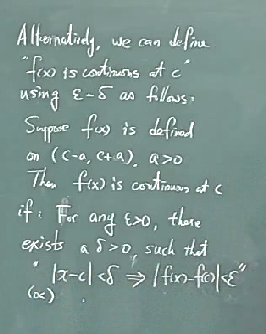 Alternatively, we can define
"f(x) is continuous at c"
using ε-δ as follows.
Suppose f(x) is defined
on (c-a, c+a), a>0
Then f(x) is continuous at c
if: For any ε>0, there
exists a δ>0, such that
" |x-c|<δ ⇒ |f(x)-f(c)|<ε"